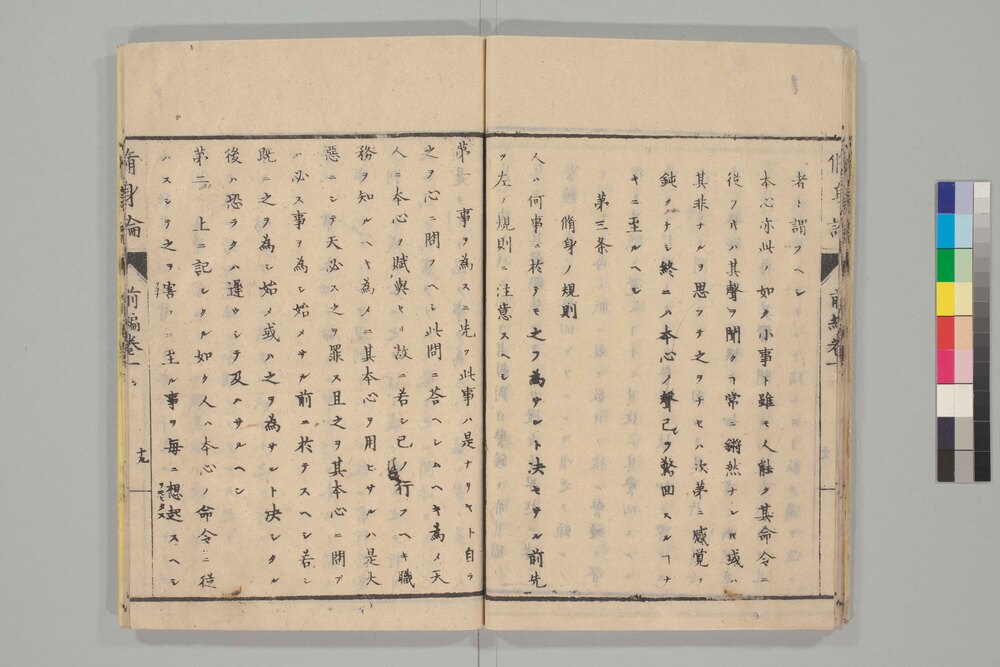 者ト謂フヘシ
本心亦此ノ如ク小事ト雖モ人能ク其命令ニ
従フ片ハ其聲ヲ聞クヿ常ニ鏘然ナレ𪜈或ハ
其非ナルヲ思フテ之ヲ图ナセハ次第ニ感覚ヲ
鈍クナシ終ニハ本心ノ聲己ヲ驚回スルヿナ
キニ至ルヘシ
第三条
脩身ノ規則
人ハ何事ニ於テモ之ヲ為サント決セサル前先
ツ左ノ規則ニ注意スヘシ
第一 事ヲ為スニ先ツ此事ハ是ナリヤト自ラ
之ヲ心ニ問フヘシ此問ニ荅ヘシムヘキ為メ天
人ニ本心ノ賦與セリ故ニ若シ已ノ行フヘキ職
務ヲ知ルヘキ為メニ其本心ヲ用ヒサルハ是大
惡ニシテ天必ス之ヲ罪ス且之ヲ其本心ニ問フ
ハ必ス事ヲ為シ始メサル前ニ於テスヘシ若シ
既ニ之ヲ為シ始メ或ハ之ヲ為サント决シタル
後ハ恐ラクハ遲ウシテ及ハサルヘシ
第二 上ニ記シタル如ク人ハ本心ノ命令ニ従
ハスシテ之ヲ害ハニ至ル事ヲ毎ニ想起スヘシ
脩身論 前編巻一
十九